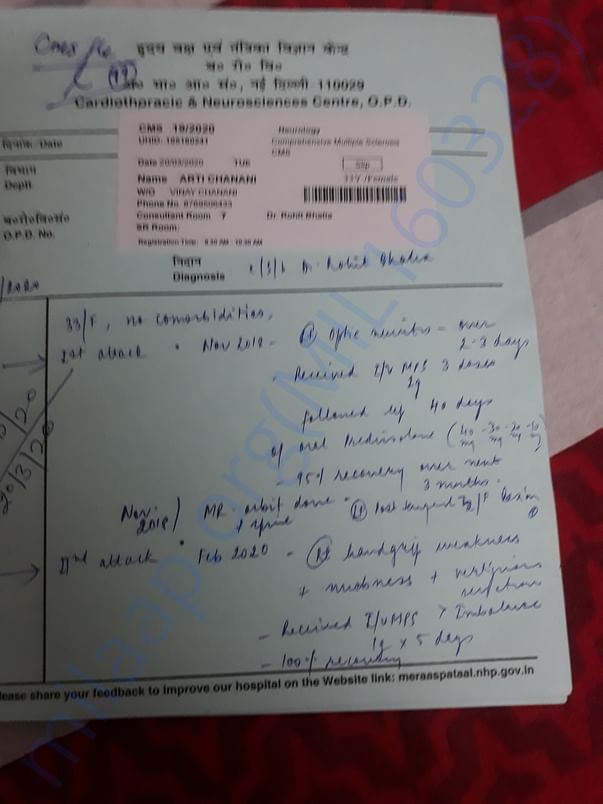 हृदय वक्ष एवं तंत्रिका विज्ञान केन्द्र
ब० रो० वि०
अ० भा० आ० सं०, नई दिल्ली 110029
Cardiothoracic & Neurosciences Centre, O.P.D.
दिनांक Date
CMS 19/2020 Neurology
UHID: Comprehensive Multiple Sclerosis
CMS
Date 20/03/2020 TUE Slip
विभाग
Deptt.
Name ARTI CHANANI 33Y /Female
W/O VINAY CHANANI
Phone No.
Consultant Room 7 Dr. Rohit Bhatia
SR Room:
Registration Time: 8.30 AM - 10.30 AM
ब०रो०वि०सं०
O.P.D. No.
निदान
Diagnosis c/s/b Dr. Rohit Bhatia
33/F, no comorbidities.
1st attack • Nov 2018 - optic neuritis - over
2-3 days
- Received I/V MPS 3 doses
1g
followed by 40 days
of oral Prednisolone (40 -30 -20 -10
mg mg mg mg)
- 95% recovery over next
3 months.
Nov 2018 MR orbit done
+ spine
IInd attack • Feb 2020 - handgrip weakness
+ numbness + vertiginous
sensation
- Received I/V MPS > Imbalance
1g x 5 days
- 100% recovery
lease share your feedback to improve our hospital on the Website link: meraaspataal.nhp.gov.in
milaap.org(MIL160328)